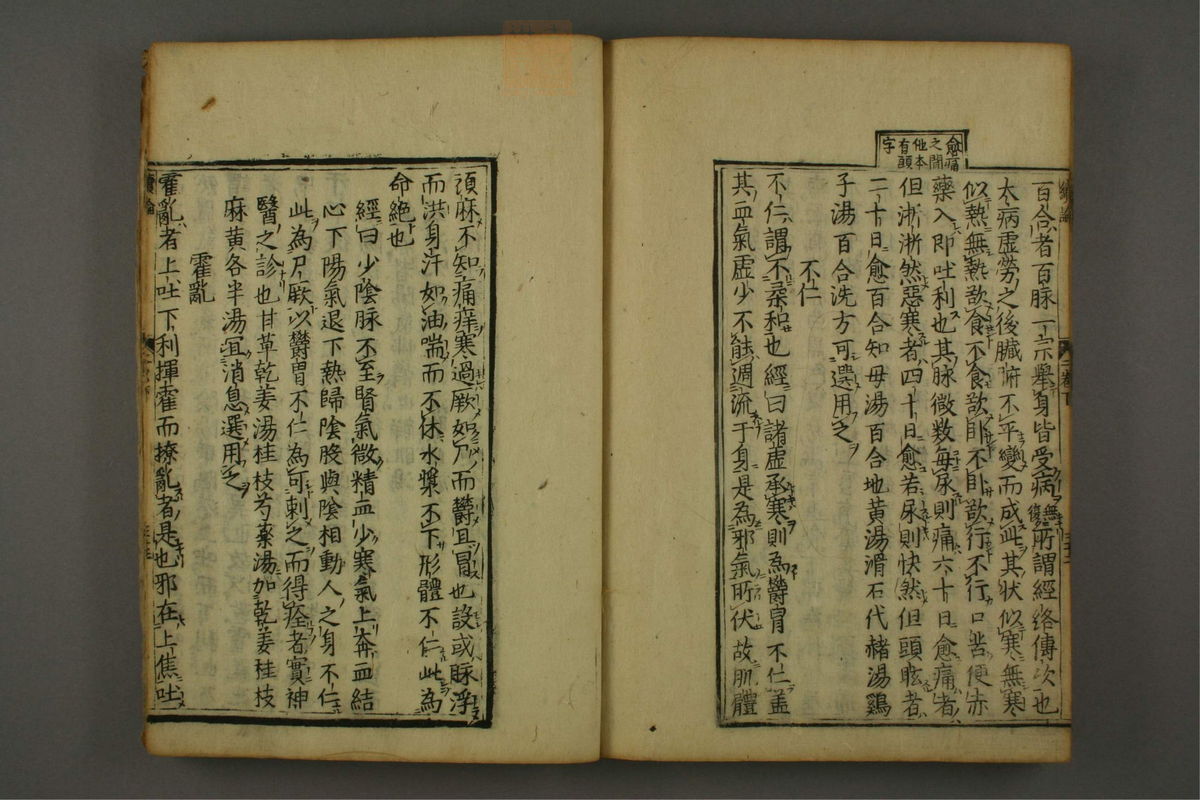 愈痛
之間
他本
有頭
字
百合者百脉一宗舉身皆受病無復所謂經絡傳次也
太病虛勞之後臟腑不平變而成此其状似寒無寒
似熱無熱欲食不食欲卧不卧欲行不行口苦便赤
藥入即吐利也其脉微数每尿則痛六十日愈痛者
但淅淅然惡寒者四十日愈若尿則快然但頭眩者
二十日愈百合知母湯百合地黄湯滑石代赭湯鷄
子湯百合洗方可選用之
不仁
不仁謂不柔和也經曰諸虛承寒則為鬱冒不仁盖
其血氣虛少不能週流于身是為邪氣所伏故肌體
頑麻不知痛痒寒過厥如尸而鬱且冒也設或脉浮
而洪身汗如油喘而不休水漿不下形體不仁此為
命絕也
經曰少陰脉不至腎氣微精血少寒氣上奔血結
心下陽氣退下熱歸陰股與陰相動人之身不仁
此為尸厥以鬱冒不仁為可刺之而得痊者實神
醫之診也甘草乾姜湯桂枝芍藥湯加乾姜桂枝
麻黄各半湯冝消息選用之
霍亂
霍亂者上吐下利揮霍而撩亂者是也邪在上焦吐